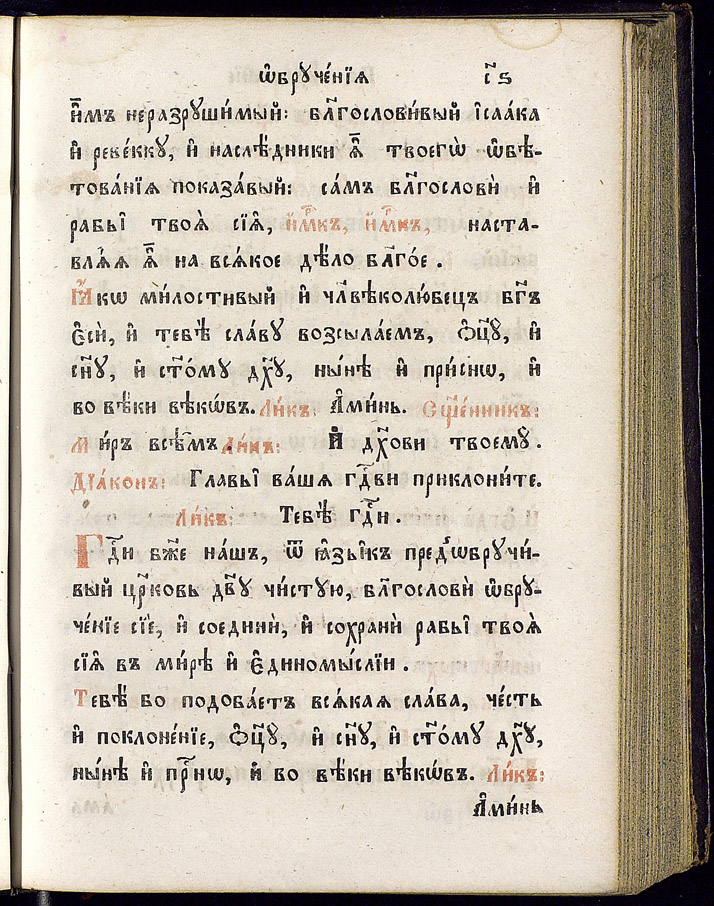 ѡ҆брꙋче́нїѧ с҃ѕ
и҆̀мъ неразрꙋши́мый: бл҃гослови́вый і҆саа́ка
и҆ реве́ккꙋ, и҆ наслѣ́дники ѧ҆̀ твоегѡ̀ ѡ҆бѣ-
това́нїѧ показа́вый: са́мъ бл҃гословѝ и҆
рабы̑ твоѧ̑ сїѧ̑, и҆́м҃къ, и҆́м҃къ, наста-
влѧ́ѧ ѧ҆̀ на всѧ́кое дѣ́ло бл҃го́е.
Ꙗ҆́кѡ ми́лостивый и҆ чл҃вѣколю́бецъ бг҃ъ
є҆сѝ, и҆ тебѣ̀ сла́вꙋ возсыла́емъ, ѻ҆ц҃ꙋ̀, и҆
сн҃ꙋ, и҆ ст҃о́мꙋ дх҃ꙋ, ны́нѣ и҆ при́снѡ, и҆
во вѣ́ки вѣкѡ́въ. Ли́къ: А҆ми́нь. Сщ҃е́нникъ:
Ми́ръ всѣ̑мъ. Ли́къ: И҆ дх҃ови твоемꙋ̀.
Дїа́конъ: Главы̑ ва́шѧ гд҃ви приклони́те.
Ли́къ: Тебѣ̀ гд҃и.
Гд҃и бж҃е на́шъ, ѿ ꙗ҆зы̑къ предѡбрꙋчи́-
вый цр҃ковь дв҃ꙋ чи́стꙋю, бл҃гословѝ ѡ҆брꙋ-
че́нїе сїѐ, и҆ соединѝ, и҆ сохранѝ рабы̑ твоѧ̑
сїѧ̑ въ ми́рѣ и҆ є҆диномы́слїи.
Тебѣ́ бо подоба́етъ всѧ́каѧ сла́ва, че́сть
и҆ поклоне́нїе, ѻ҆ц҃ꙋ̀, и҆ сн҃ꙋ, и҆ ст҃о́мꙋ дх҃ꙋ,
ны́нѣ и҆ пр҃нѡ, и҆ во вѣ́ки вѣкѡ́въ. Ли́къ:
А҆ми́нь